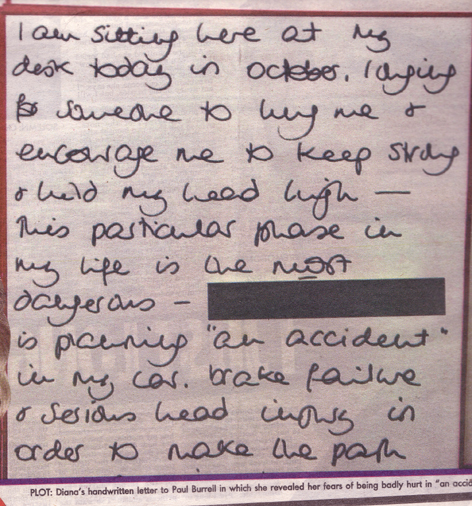 I am sitting here at my
desk today in october, longing
for someone to hug me &
encourage me to keep strong
& hold my head high —
This particular phase in
my life is the most
dangerous —
is planning "an accident"
in my car. brake failure
& serious head injury in
order to make the path
PLOT: Diana's handwritten letter to Paul Burrell in which she revealed her fears of being badly hurt in "an accid